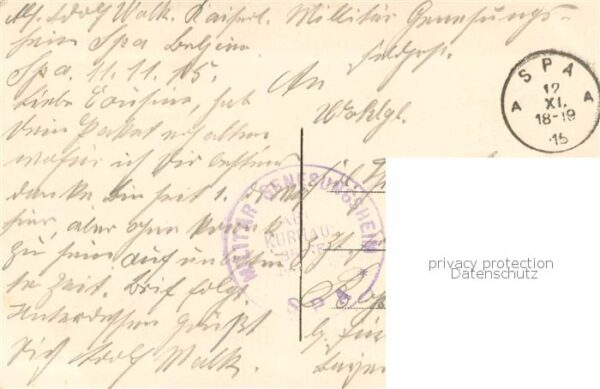 Adolf Walk. Kaiserl. Militär Genesungs-
heim Spa Belgien
Feldpost.
Spa. 11.11.15.
An
Liebe Cousine, hab
Wohlgb.
Dein Paket erhalten
wofür ich Dir bestens
danke. Bin seit 1.
hier, aber ohne krank
zu sein auf unbestimm
te Zeit. Brief folgt.
Unterdessen grüßt
Dich Adolf Walk.
SPA
12
XI.
18-19
15
A A
MILITÄR GENESUNGSHEIM
KURHAUS
SPA
privacy protection
Datenschutz